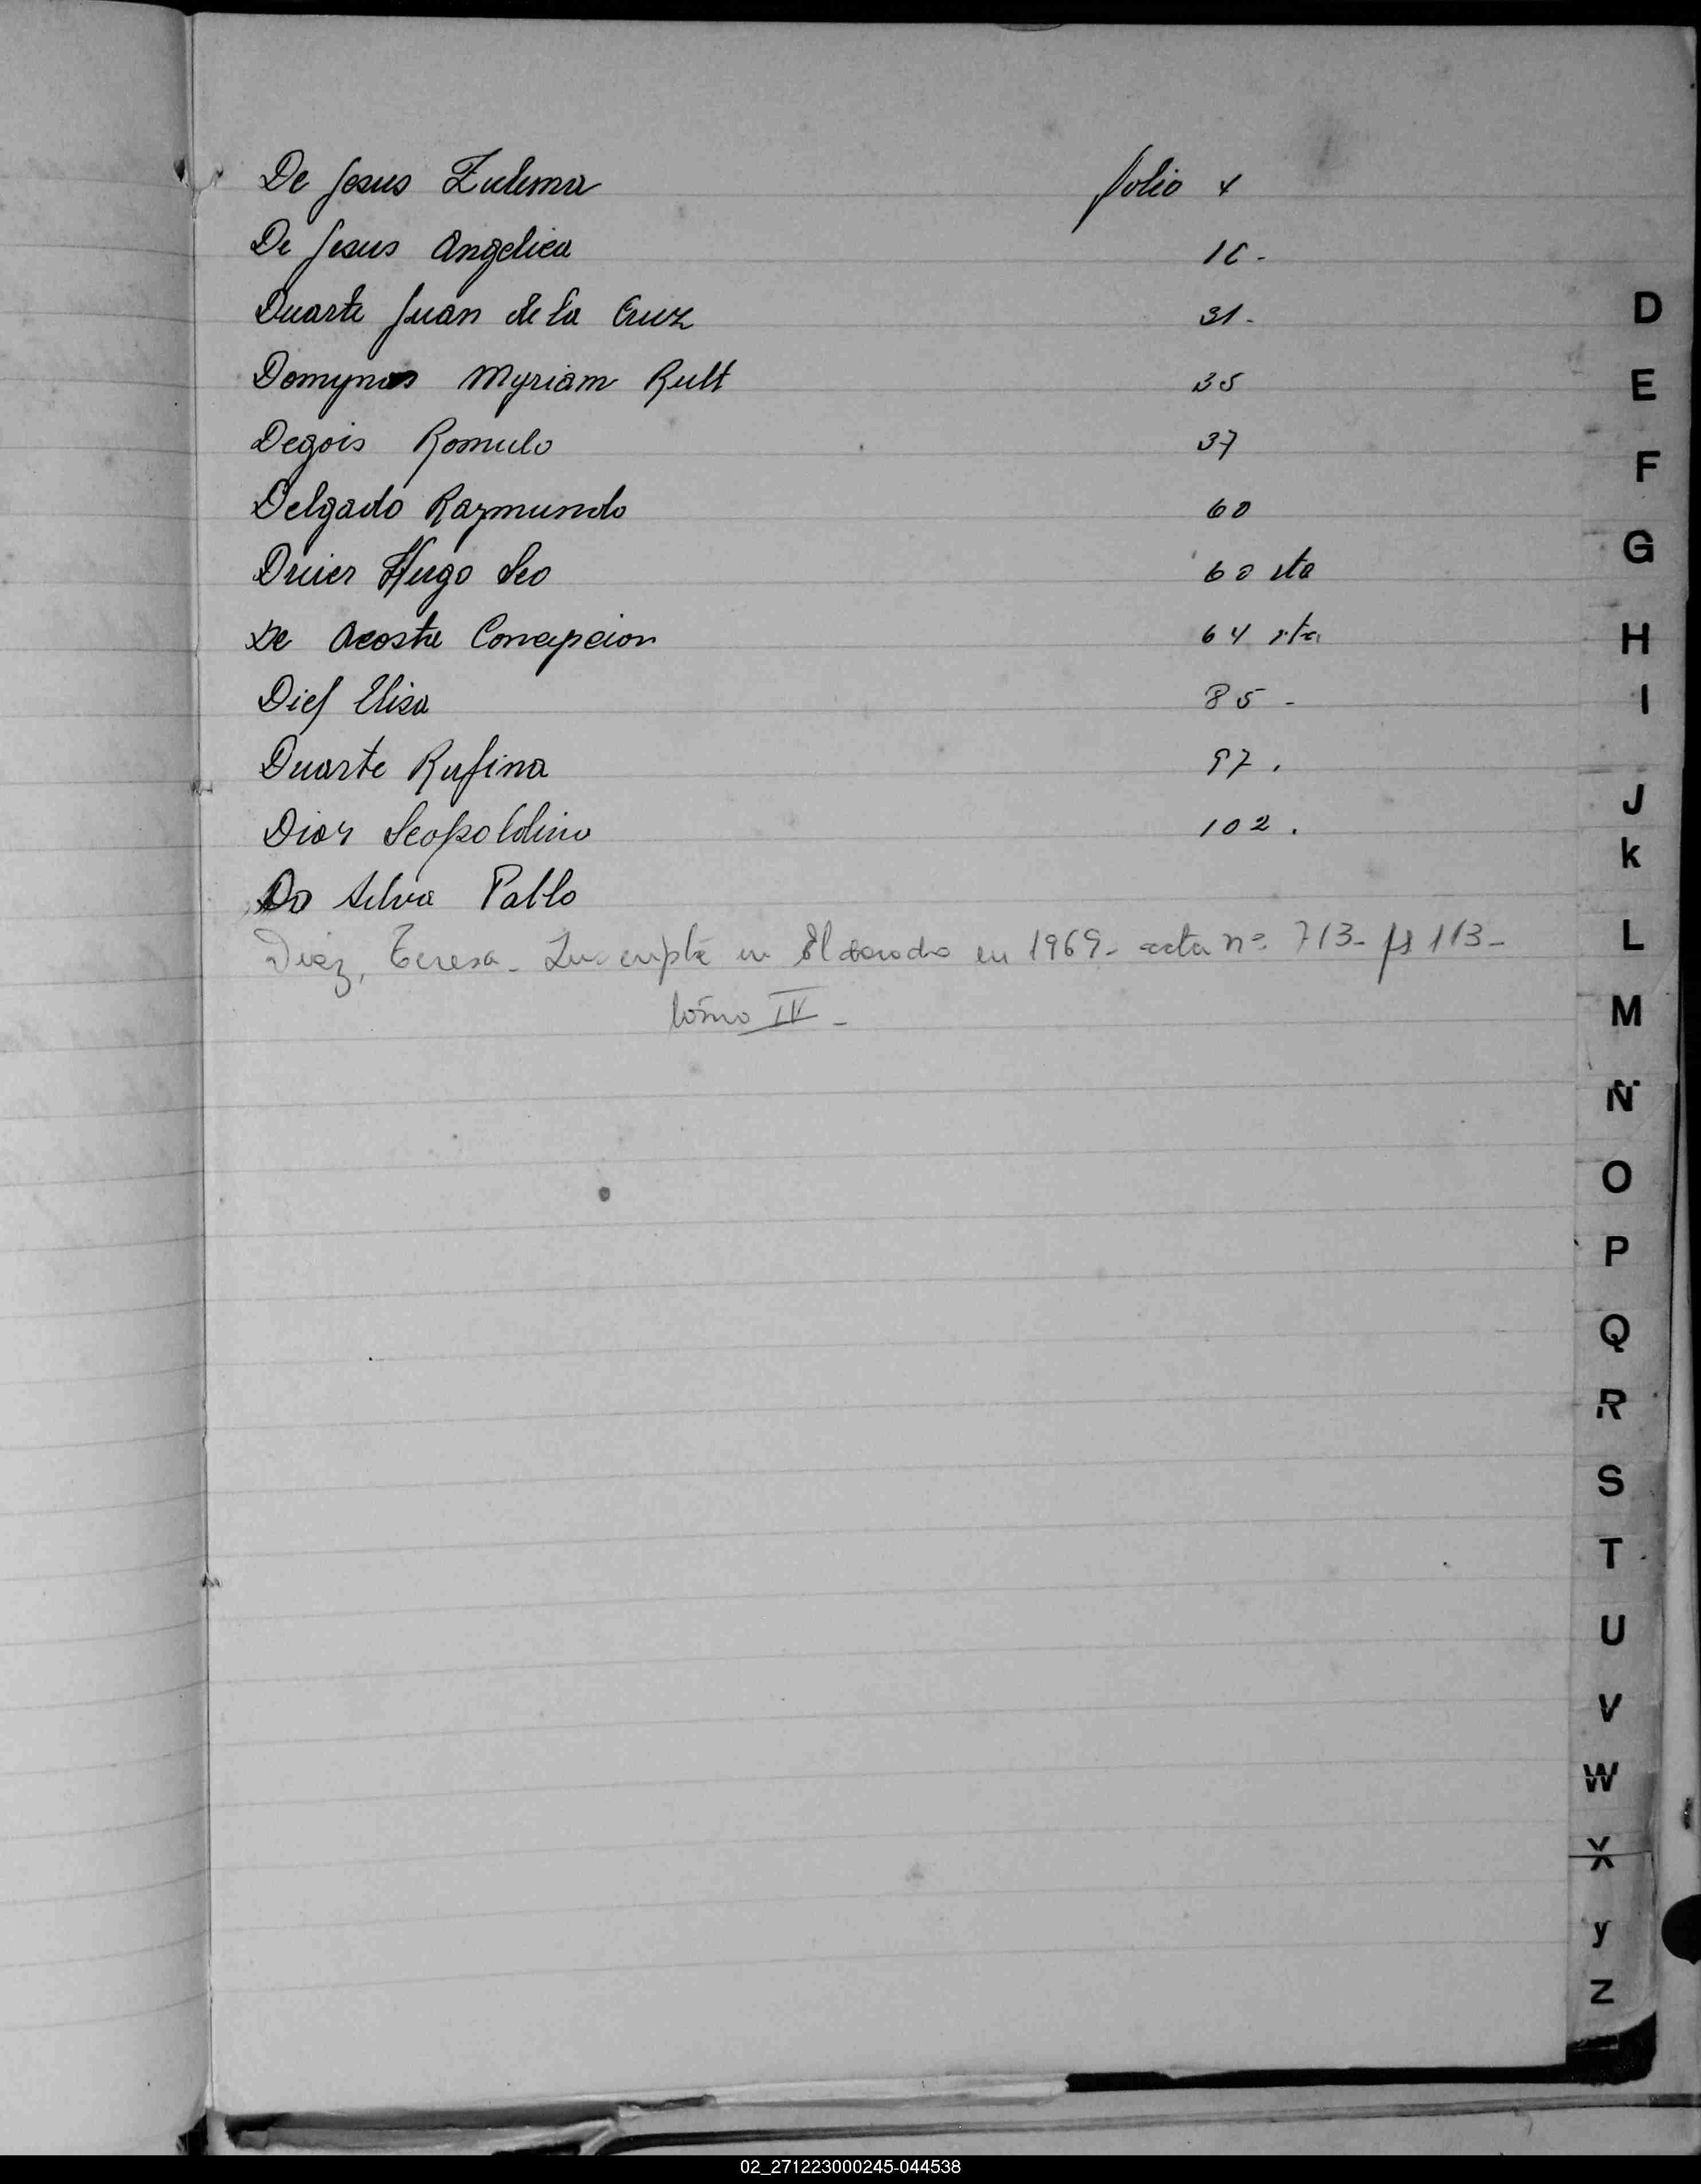 De Jesus Zulema folio 4
De Jesus Angelica 16 -
Duarte Juan de la Cruz 31 -
Domynas Myriam Rult 35
Degois Romulo 37
Delgado Raymundo 60
Druer Hugo Leo 60 vta
De Acosta Concepcion 64 vta
Dief Elisa 85 -
Duarte Rufina 97 .
Dior Leopoldino 102 .
Da Silva Pablo
Diez, Teresa - Inscripta en Eldorado en 1969 - acta nº 713 - fs 113 -
tómo IV -
D
E
F
G
H
I
J
k
L
M
Ñ
O
P
Q
R
S
T
U
V
W
X
y
Z
02_271223000245-044538